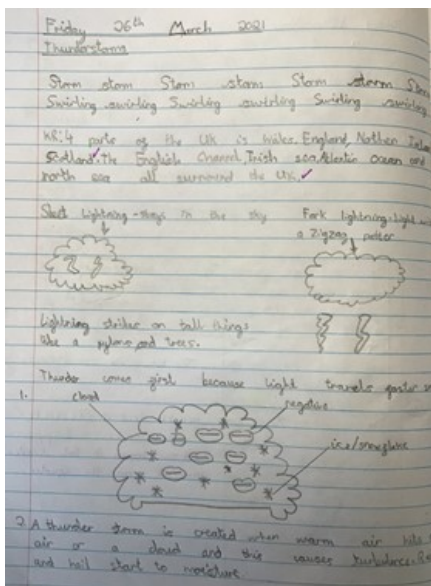 Friday 26th March 2021
Thunderstorms
Storm storm Storm storm Storm storm
Swirling swirling Swirling swirling Swirling swirling
4 parts of the UK is Wales, England, Nothen
Scotland. The English Channel, Irish sea, Atlantic Ocean and
north sea all surround the UK.
Sheet Lightning - stays in the sky
Fork lightning
a zigzag
Lightning strikes on tall things
like a pylons and trees.
Thunder comes first because light travels faster
1.
cloud
negative
ice/snowflake
2. A thunder storm is created when warm air hits
air or a cloud and this causes turbulence.
and hail start to moisture.